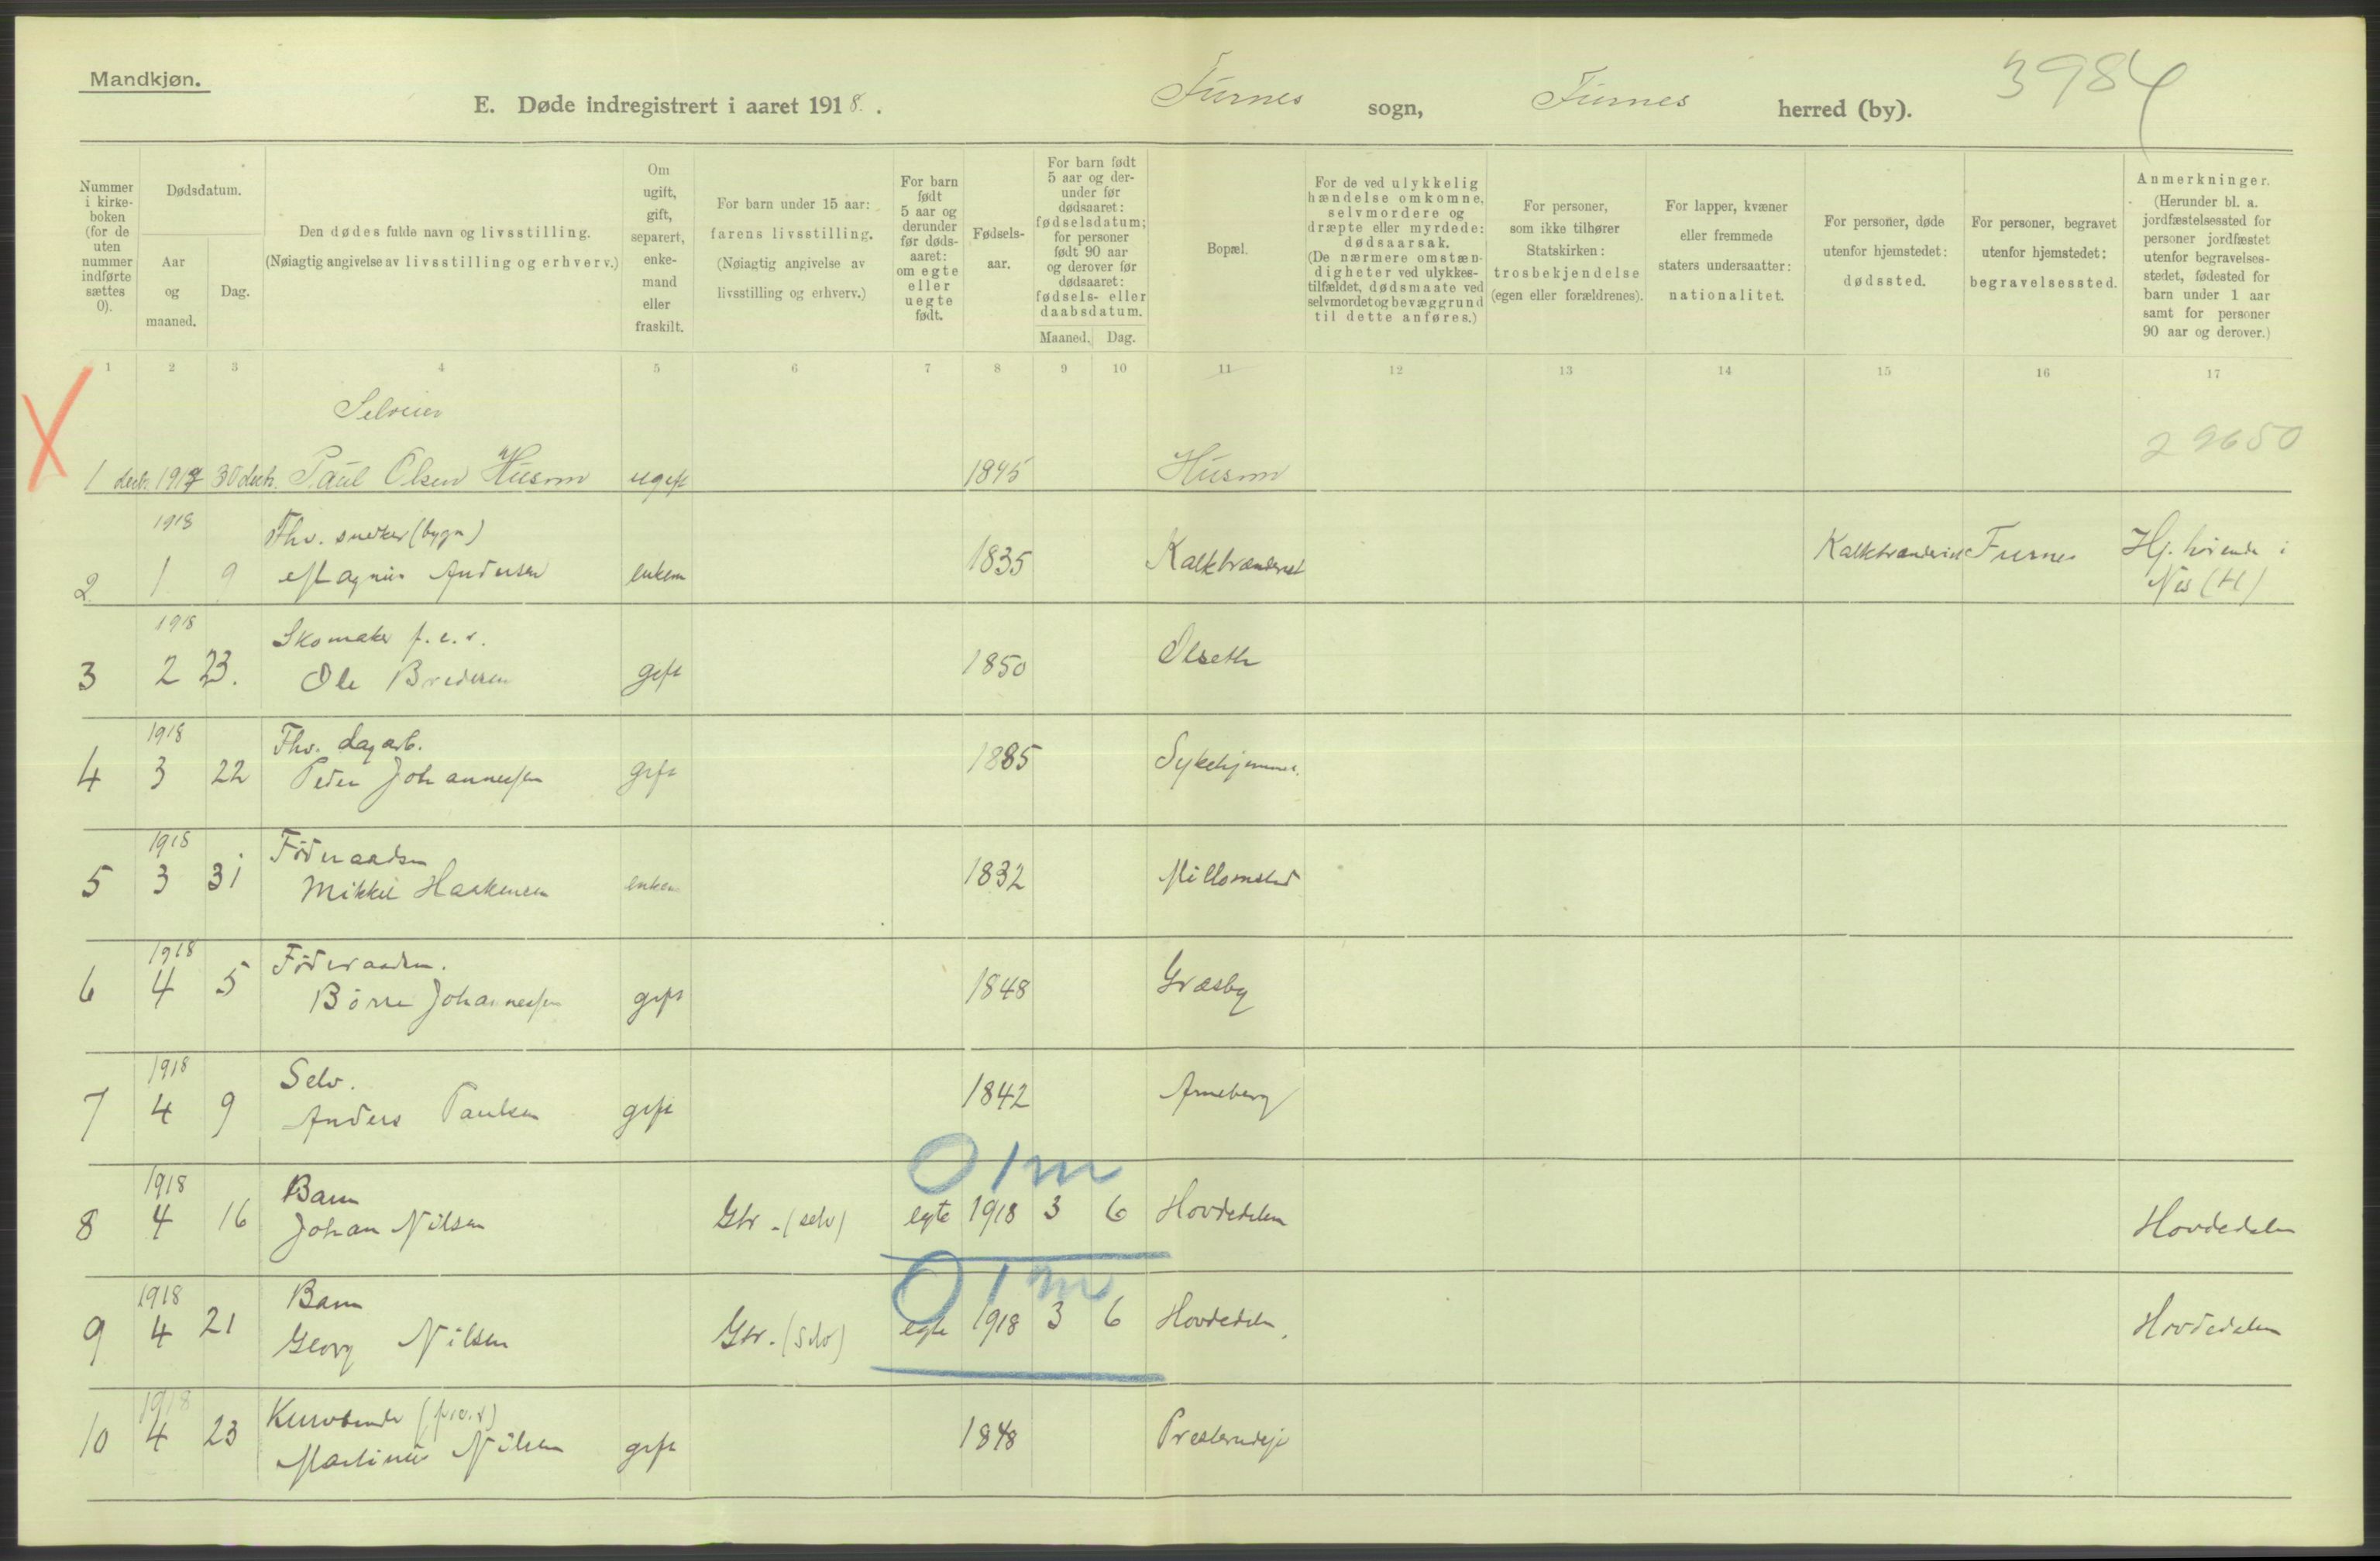 Mandkjøn.
E. Døde indregistrert i aaret 1918. Furnes sogn, Furnes herred (by). 3984
Nummer i kirke-boken (for de uten nummer indførte sættes 0).
Dødsdatum.
Aar og maaned.
Dag.
Den dødes fulde navn og livsstilling.
(Nøiagtig angivelse av livsstilling og erhverv.)
Om ugift, gift, separert, enke-mand eller fraskilt.
For barn under 15 aar: farens livsstilling.
(Nøiagtig angivelse av livsstilling og erhverv.)
For barn født 5 aar og derunder før døds-aaret: om egte eller uegte født.
Fødsels-aar.
For barn født 5 aar og der-under før dødsaaret: fødselsdatum; for personer født 90 aar og derover før dødsaaret: fødsels- eller daabsdatum.
Maaned. Dag.
Bopæl.
For de ved ulykkelig hændelse omkomne, selvmordere og dræpte eller myrdede: dødsaarsak.
(De nærmere omstæn-digheter ved ulykkes-tilfældet, dødsmaate ved selvmordet og bevæggrund til dette anføres.)
For personer, som ikke tilhører Statskirken: trosbekjendelse (egen eller forældrenes).
For lapper, kvæner eller fremmede staters undersaatter: nationalitet.
For personer, døde utenfor hjemstedet: dødssted.
For personer, begravet utenfor hjemstedet: begravelsessted.
Anmerkninger.
(Herunder bl. a. jordfæstelsessted for personer jordfæstet utenfor begravelses-stedet, fødested for barn under 1 aar samt for personer 90 aar og derover.)
1 2 3 4 5 6 7 8 9 10 11 12 13 14 15 16 17
X
Selveier
29650
1 decb. 1917 30 decb. Paul Olsen Husom ugift 1845 Husom
1918 Fhv. snedker (bygn)
2 1 9 Magnus Andersen enkem 1835 Kalkbrænderiet Kalkbrænderiet Furnes Hj. hørende i
Nes (H)
1918 Skomaker f. e. r.
3 2 23. Ole Bredesen gift 1850 Olseth
1918 Fhv. dagarb.
4 3 22 Peder Johannessen gift 1885 Sykehjemmet.
1918 Føderaadsm
5 3 31 Mikkel Haakensen enkem 1832 Mellomsted
1918 Føderaadsm.
6 4 5 Børre Johannessen gift 1848 Græsby
1918 Selv.
7 4 9 Anders Paulsen gift 1842 Arneberg
0 1 m
1918 Barn
8 4 16 Johan Nilsen Gbr. (selv) egte 1918 3 6 Hovdedalen Hovdedalen
0 1 m
1918 Barn
9 4 21 Georg Nilsen Gbr. (selv) egte 1918 3 6 Hovdedalen Hovdedalen
1918 Kurvbinder
10 4 23 Martinus Nilsen gift 1848